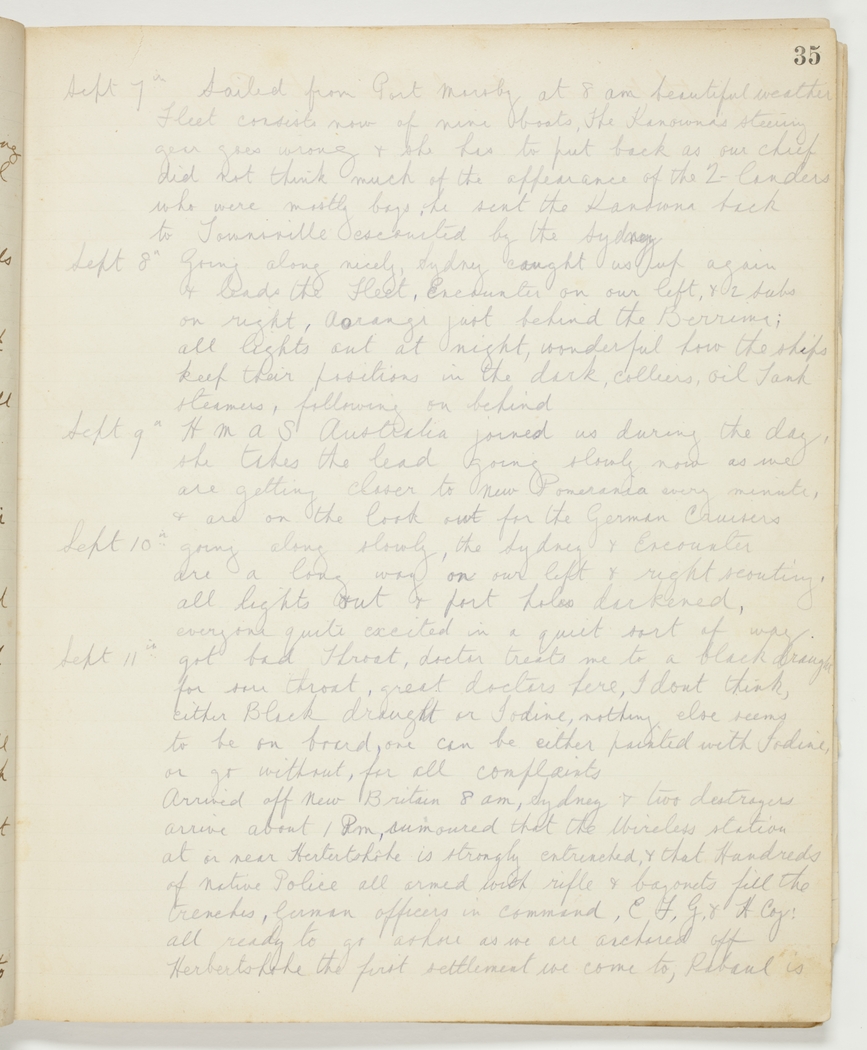 35
Sept 7th Sailed from Port Moresby at 8 am beautiful weather
Fleet consists now of nine boats, The Kanownas steering
gear goes wrong & she has to put back as our chief
did not think much of the appearance of the 2-landers
who were mostly boys, he sent the Kanowna back
to Townsville escourted by the Sydney
Sept 8th Going along nicely, Sydney caught us up again
& leads the Fleet, Encounter on our left, & 2 subs
on right, Aorangi just behind the Berrima;
all lights out at night, wonderful how the ships
keep their positions in the dark, colliers, oil Tank
steamers, following on behind
Sept 9th H M A S Australia joined us during the day,
she takes the lead going slowly now as we
are getting closer to New Pomerania every minute,
& are on the look out for the German Cruisers
Sept 10th going along slowly, the Sydney & Encounter
are a long way on our left & right scouting,
all lights out & port holes darkened,
everyone quite excited in a quiet sort of way.
Sept 11th got bad Throat, doctor treats me to a black draught
for sore throat, great doctors here, I dont think,
either Black draught or Iodine, nothing else seems
to be on board, one can be either painted with Iodine,
or go without, for all complaints
Arrived off New Britain 8 am, Sydney & two destroyers
arrive about 1 Pm, rumoured that the Wireless station
at or near Herbertshöhe is strongly entrenched, & that Hundreds
of Native Police all armed with rifle & bayonets fill the
trenches, German officers in command, E F, G, & H Coy:
all ready to go ashore as we are anchored off
Herbertshohe the first settlement we come to, Rabaul is